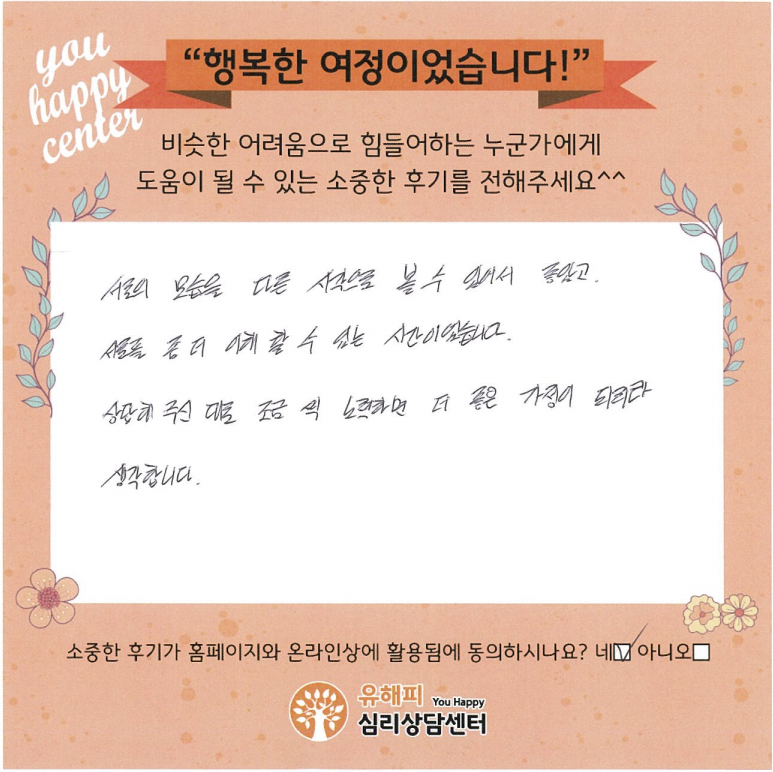 you
happy
center
“행복한 여정이었습니다!”
비슷한 어려움으로 힘들어하는 누군가에게
도움이 될 수 있는 소중한 후기를 전해주세요^^
서로의 모습을 다른 시각으로 볼 수 있어서 좋았고.
서로를 좀 더 이해 할 수 있는 시간이었습니다.
상담해 주신 대로 조금 씩 노력하면 더 좋은 가정이 되리라
생각합니다.
소중한 후기가 홈페이지와 온라인상에 활용됨에 동의하시나요? 네☑ 아니오☐
유해피 You Happy
심리상담센터